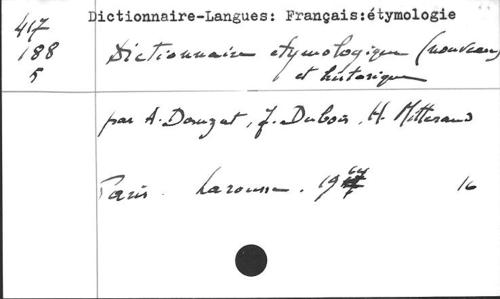 417
188
5
Dictionnaire-Langues: Français:étymologie
Dictionnaire etymologique (nouveau)
et historique
par A. Dauzat, J. Dubois, H. Mitterand
Paris. Larousse. 1964
16